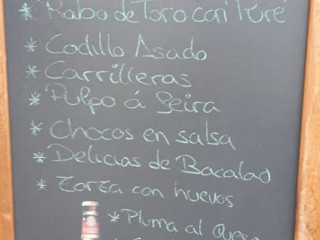 * Rabo de Toro con Puré
* Codillo Asado
* Carrilleras
* Pulpo á feira
* Chocos en salsa
* Delicias de Bacalao
* Zorza con huevos
* Pluma al Queso